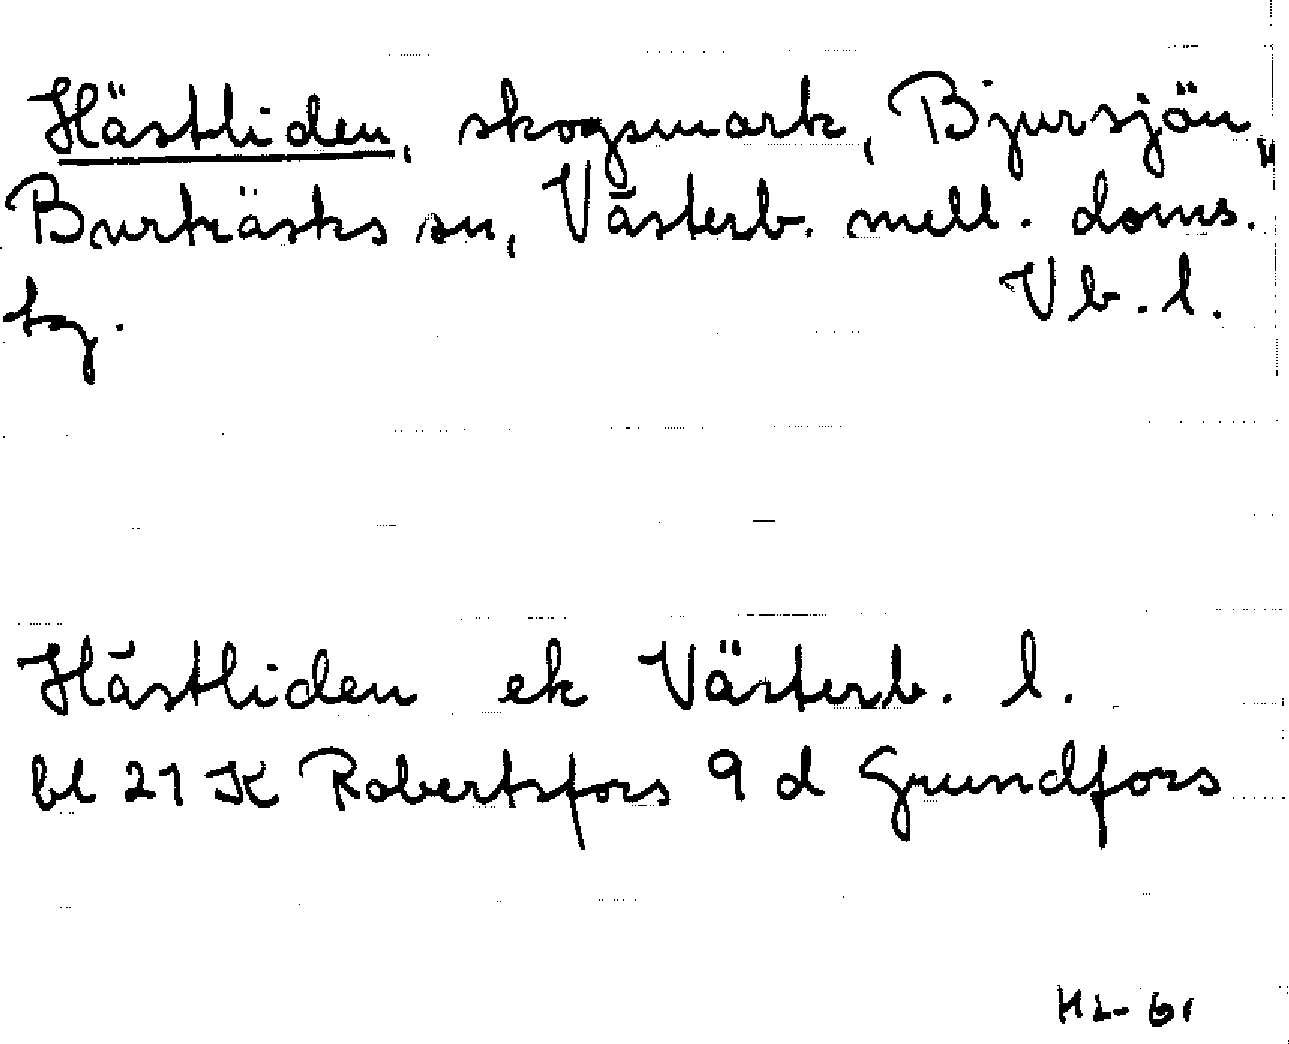 Hästliden, skogsmark, Bjursjön,
Burträsks sn, Västerb. mell. doms.
tg. Vb. l.
Hästliden ek Västerb. l.
bl 21 K Robertsfors 9 d Grundfors
HL-61